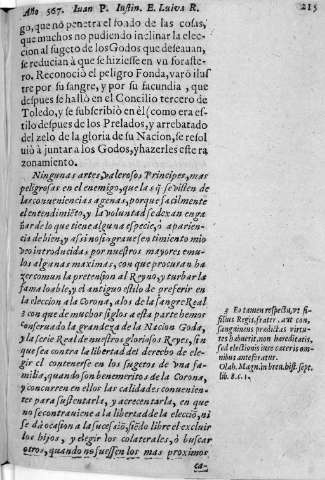 Año 567. Iuan P. Iustin. E. Luiva R. 215
go, que nò penetra el fondo de las cosas,
que muchos no pudiendo inclinar la elec-
cion al sugeto de los Godos que deseauan,
se reducian à que se hiziesse en vn foraste-
ro. Reconociò el peligro Fonda, varò ilus
tre por su sangre, y por su facundia, que
despues se hallò en el Concilio tercero de
Toledo, y se subscribiò en èl (como era es-
tilo despues de los Prelados, y arrebatado
del zelo de la gloria de su Nacion, se resol
uiò à juntar a los Godos, y hazerles este ra
zonamiento.
Ningunas artes, valerosos Principes, mas
peligrosas en el enemigo, que las q̃ se visten de
las conueniencias agenas, porque facilmente
el entendimiẽto, y la voluntad se dexan enga
ñar de lo que tiene alguna especie, ò aparien-
cia de bien, y assi no sin graue sentimiento mio
veo introducidas, por nuestros mayore emu-
los algunas maximas, con que procuran ha
zer comun la pretension al Reyno, y turbar la
fama loable, y el antiguo estilo de preferir en
la eleccion a la Corona, a los de la sangre Real
3 con que de muchos siglos a esta parte hemos
conseruado la grandeza de la Nacion Goda,
y la serie Real de nuestros gloriosos Reyes, sin
que sea contra la libertad del derecho de ele-
gir el contenerse en los sugetos de vna fa-
milia, quando son benemeritos de la Corona,
y concurren en ellos las calidades conuenien-
ter para sustentarla, y acrecentarla, en que
no se contrauiene a la libertad de la elecciõ, ni
se dà ocasion a la sucesiõ, siẽdo libre el excluir
los hijos, y elegir los colaterales, ò buscar
otros, quando no fuessen los mas proximos
ca-
3 Eo tamen respectu, vt fi-
lius Regis, frater, aut con-
sanguineus predictas virtu-
tes habuerit, non hereditatis,
sed electionis iure cæteris om-
nibus anteferatur.
Olah. Magn. in breu. hist. sept.
lib. 8. c. 1.